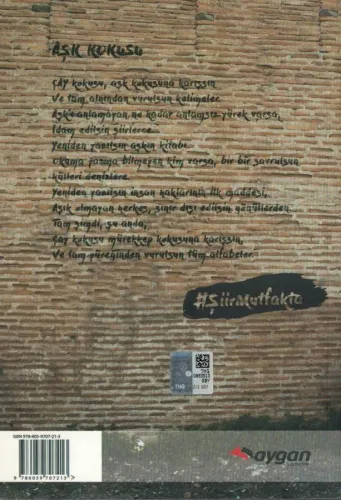 AŞK KOKUSU
Çay kokusu, aşk kokusuna karışsın
Ve tam alnından vurulsun kelimeler.
Aşk'ı anlamayan ne kadar anlamsız yürek varsa,
İdam edilsin şiirlerce.
Yeniden yazılsın aşkın kitabı.
Okuma yazma bilmeyen kim varsa, bir bir savrulsun
külleri denizlere.
Yeniden yazılsın insan haklarının ilk maddesi,
Aşık olmayan herkes, sınır dışı edilsin gönüllerden.
Tam şimdi, şu anda,
Çay kokusu mürekkep kokusuna karışsın,
Ve tam yüreğinden vurulsun tüm alfabeler.
#ŞiirMutfakta
THG
ISBN 978-605-9707-21-3
9 786059 707213 >
aygan